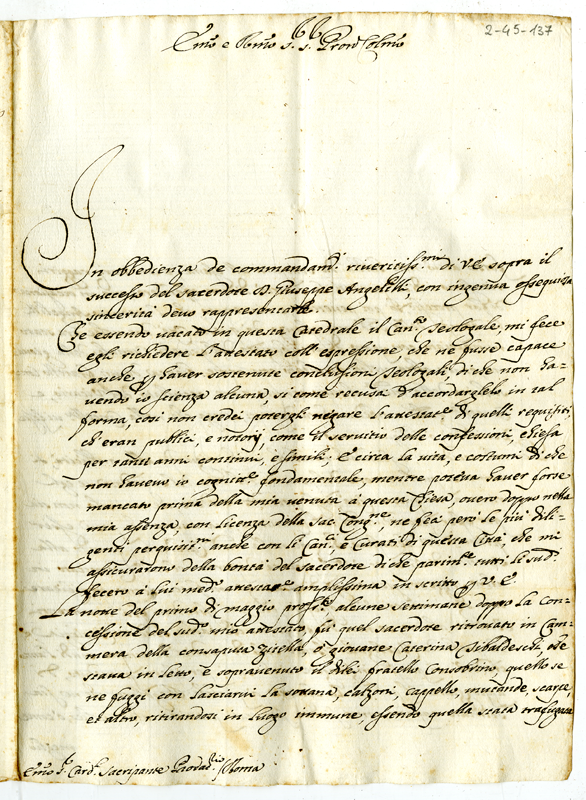 2-45-137
Em̃o e Rm̃o S. S. Pron Colmo
In obbedienza de commandam.ti riveritiss.mi di V.E. sopra il
successo del sacerdote D. Giuseppe Angelitti, con ingenua ossequiosa
sincerità devo rappresentarle.
Che essendo vacato in questa Catedrale il Can.to Teologale, mi fece
egli richiedere l'attestato coll'espressione, che ne fusse capace
anche p haver sostenute conclusioni Teologali, di che non ha-
vendo io scienza alcuna, si come recusai d'accordarglelo in tal
forma, così non credei potergli negare l'attestat.e di quelli requisiti,
ch'eran publici, e notorij, come il servitio delle confessioni, chiesa
per tanti anni continui, e simili; E circa la vita, e costumi di che
non havevo io cognit.ne fondamentale, mentre poteva haver forse
mancato prima della mia venuta a questa Chiesa, overo doppo nella
mia assenza, con licenza della Sac. Cong.ne, ne feci però le più dili-
genti perquisit.ni anche con li Can.ci e Curati di questa Città, che mi
assicurarono della bontà del sacerdote di che parim.te tutti li sud.i
fecero a lui med.o attestat.ne amplissima in scritto p V.E.
La notte del primo di maggio pross.o alcune settimane doppo la con-
cessione del sud.o mio attestato, fù quel sacerdote ritrovato in Cam-
mera della consaputa zitella, ò giovane Caterina Sibaldeschi, che
stava in letto, e sopravenuto il di lei fratello Consobrino, quello se
ne fuggì con lasciarvi la sottana, calzoni, cappello, mutande, scarpe,
et altro, ritirandosi in luogo immune, essendo quella stata trafugata
Em̃o S. Card. Sacripante Prodat.rio / Roma